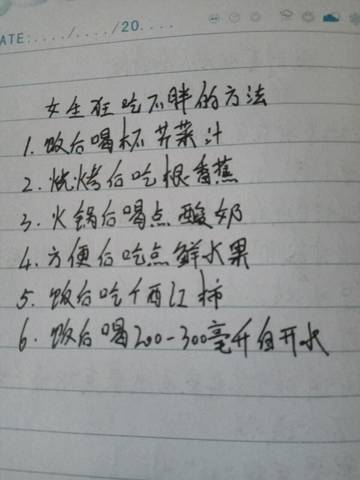 DATE:..../..../20....
女生狂吃不胖的方法
1. 饭后喝杯芹菜汁
2. 烧烤后吃根香蕉
3. 火锅后喝点酸奶
4. 方便后吃点鲜水果
5. 饭后吃个西红柿
6. 饭后喝200-300毫升白开水